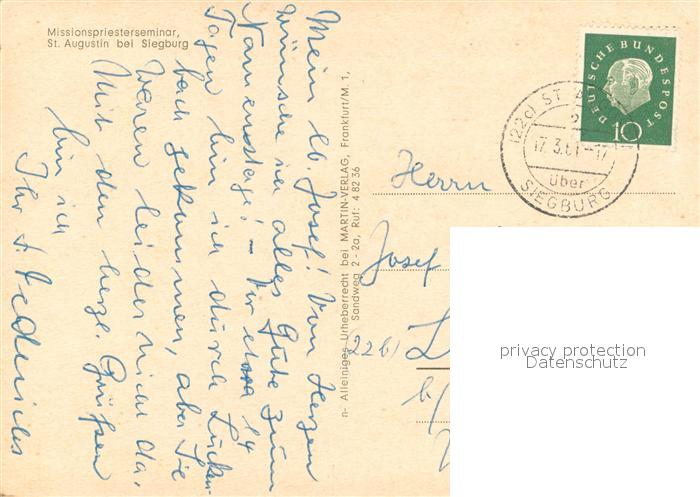 Missionspriesterseminar,
St. Augustin bei Siegburg
Mein lb. Josef! Von Herzen
wünsche ich alles Gute zum
Namenstage! – Vor etwa 14
Tagen bin ich durch Lucken-
bach gekommen, aber Sie
waren leider nicht da.
Mit den herzl. Grüßen
bin ich
Ihr
n- Alleiniges Urheberrecht bei MARTIN-VERLAG, Frankfurt/M. 1,
Sandweg 2 - 2a, Ruf: 4 82 36
DEUTSCHE BUNDESPOST
10
(22c) ST
17.3.61-17
über
SIEGBURG
Herrn
Josef
(22b) L
b/
privacy protection
Datenschutz